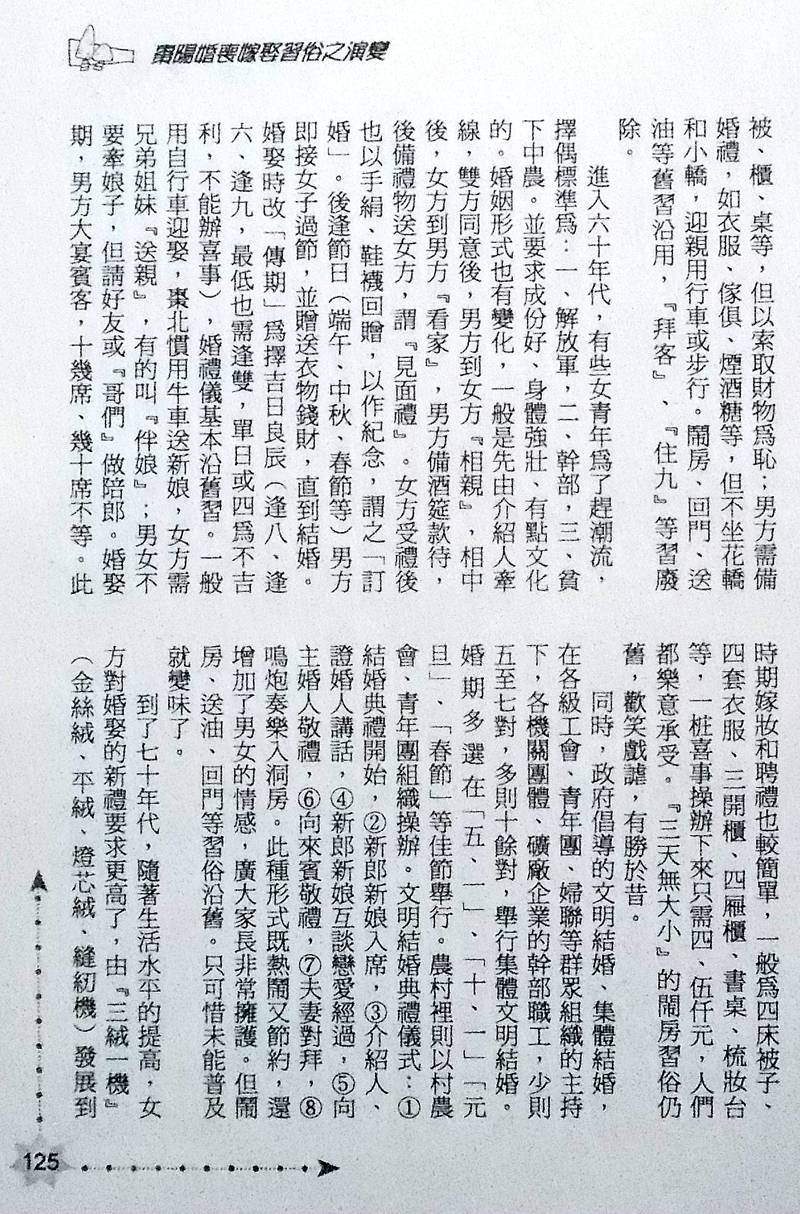 棗陽婚喪嫁娶習俗之演變
被、櫃、桌等，但以索取財物爲恥；男方需備
婚禮，如衣服、傢俱、煙酒糖等，但不坐花轎
和小轎，迎親用行車或步行。鬧房、回門、送
油等舊習沿用，『拜客』、『住九』等習廢
除。
進入六十年代，有些女青年爲了趕潮流，
擇偶標準爲：一、解放軍，二、幹部，三、貧
下中農。並要求成份好、身體強壯、有點文化
的。婚姻形式也有變化，一般是先由介紹人牽
線，雙方同意後，男方到女方『相親』，相中
後，女方到男方『看家』，男方備酒筵款待，
後備禮物送女方，謂『見面禮』。女方受禮後
也以手絹、鞋襪回贈，以作紀念，謂之「訂
婚」。後逢節日（端午、中秋、春節等）男方
即接女子過節，並贈送衣物錢財，直到結婚。
婚娶時改「傳期」爲擇吉日良辰（逢八、逢
六、逢九，最低也需逢雙，單日或四爲不吉
利，不能辦喜事），婚禮儀基本沿舊習。一般
用自行車迎娶，棗北慣用牛車送新娘，女方需
兄弟姐妹『送親』，有的叫『伴娘』；男女不
要牽娘子，但請好友或『哥們』做陪郎。婚娶
期，男方大宴賓客，十幾席、幾十席不等。此
時期嫁妝和聘禮也較簡單，一般爲四床被子、
四套衣服、三開櫃、四厢櫃、書桌、梳妝台
等，一桩喜事操辦下來只需四、伍仟元，人們
都樂意承受。『三天無大小』的鬧房習俗仍
舊，歡笑戲謔，有勝於昔。
同時，政府倡導的文明結婚、集體結婚，
在各級工會、青年團、婦聯等群眾組織的主持
下，各機關團體、礦廠企業的幹部職工，少則
五至七對，多則十餘對，舉行集體文明結婚。
婚期多選在「五、一」、「十、一」「元
旦」、「春節」等佳節舉行。農村裡則以村農
會、青年團組織操辦。文明結婚典禮儀式：①
結婚典禮開始，②新郎新娘入席，③介紹人、
證婚人講話，④新郎新娘互談戀愛經過，⑤向
主婚人敬禮，⑥向來賓敬禮，⑦夫妻對拜，⑧
鳴炮奏樂入洞房。此種形式既熱鬧又節約，還
增加了男女的情感，廣大家長非常擁護。但鬧
房、送油、回門等習俗沿舊。只可惜未能普及
就變味了。
到了七十年代，隨著生活水平的提高，女
方對婚娶的新禮要求更高了，由『三絨一機』
（金絲絨、平絨、燈芯絨、縫紉機）發展到
125